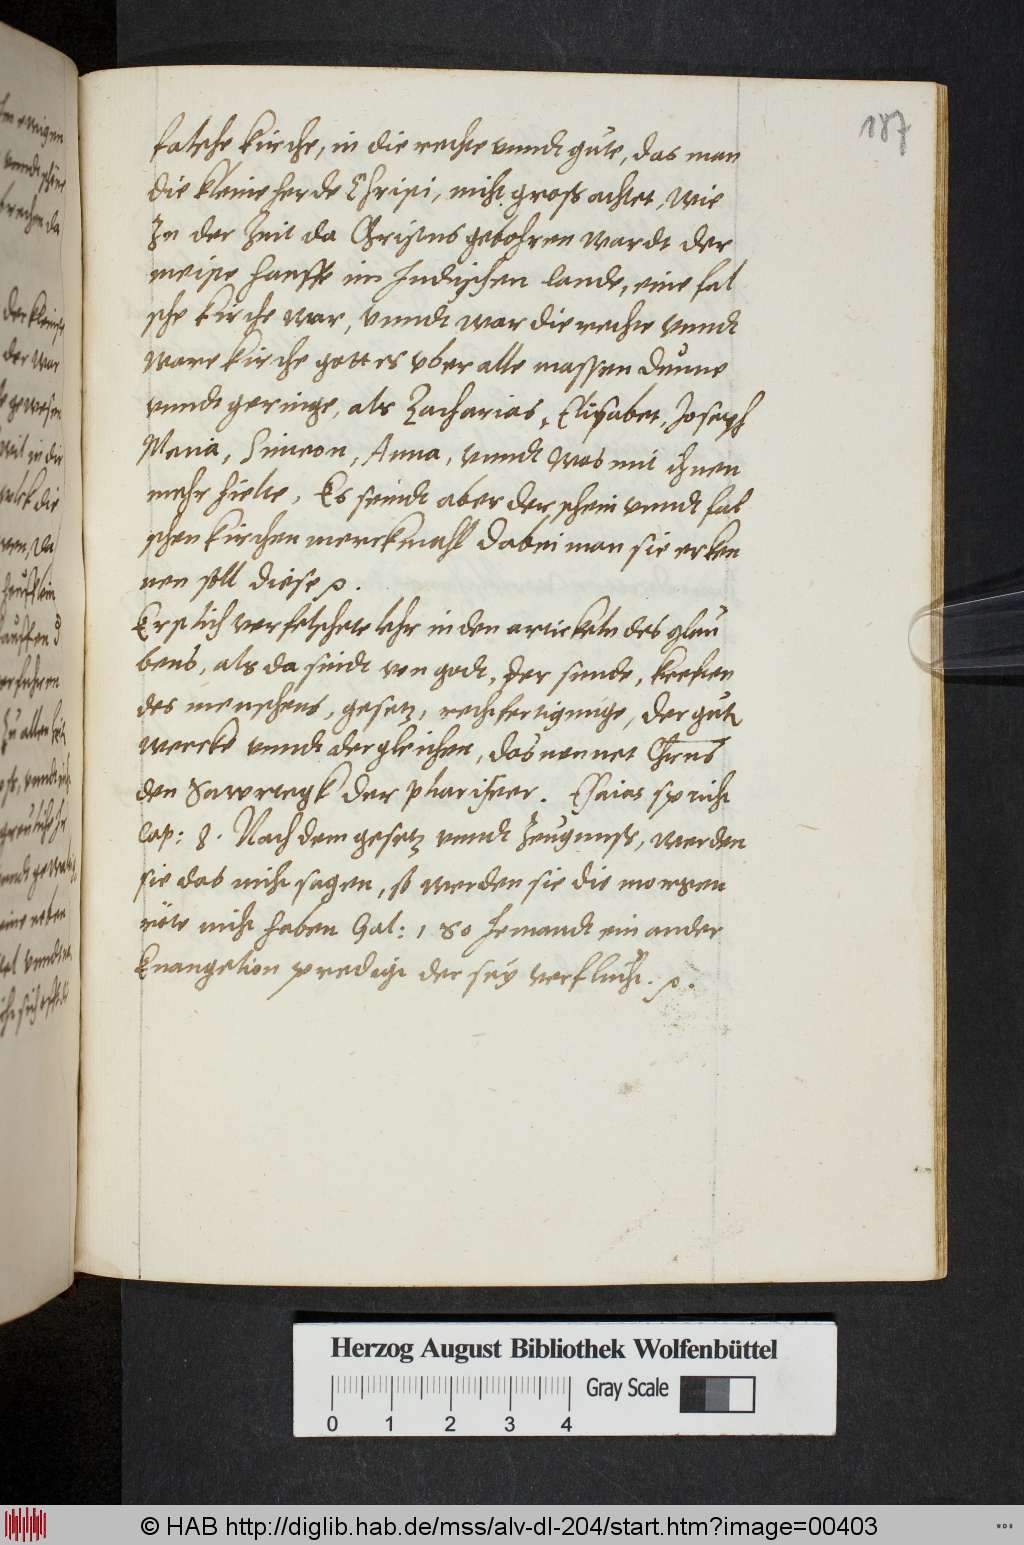 187
falsche kirche, in die rechte vnndt gute, das man
die kleine herde Christi, nicht gross achtet, wie
Zu der Zeit da Christus gebohren wardt der
meiste hauffe im Judischen lande, eine fal
sche kirche war, vnndt war die rechte vnndt
ware kirche gottes vber alle massen dunne
vnndt geringe, als Zacharias, Elisabet, Joseph
Maria, Simeon, Anna, vnndt was mit ihnen
mehr hielte, Es seindt aber der schein vnndt fal
schen kirchen merckmahl dabei man sie erken
nen soll diese
Erstlich verfelschete lehr in den artickeln des glau
bens, als da sindt von godt, der sunde, krefften
des menschens, gesetz, rechtfertigunge, der gute
wercke vnndt dergleichen, das nennet Christus
den Sawrtegk der phariseer. Esaias spricht
Cap: 8. Nach dem gesetz vnndt Zeugnuss, werden
sie das nicht sagen, so werden sie die morgen
röte nicht haben Gal: 1 So Jemandt ein ander
Euangelion predigt der sey verflucht.
Herzog August Bibliothek Wolfenbüttel
Gray Scale
0 1 2 3 4
© HAB http://diglib.hab.de/mss/alv-dl-204/start.htm?image=00403